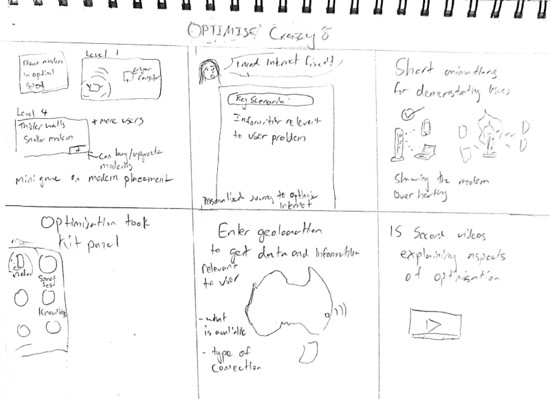 OPTIMISE Crazy 8
Place modem
in optimal
spot
Level 1
user
computer
Level 4
Thicker walls
Smaller modem
+ more users
+
Can buy/upgrade
modems
Minigame on modem placement
I need Internet fixed?
Key Scenario:
Information relevent
to user problem
Personalised journey to optimise
Internet
Short animations
for demonstrating issues
Showing the modem
Overheating
Optimisation tool
kit panel
Video
Speed
test
Enter geolocation
to get data and information
relevant
to user
- what
is available
- type of
connection
15 Second videos
explaining aspects
of optimisation